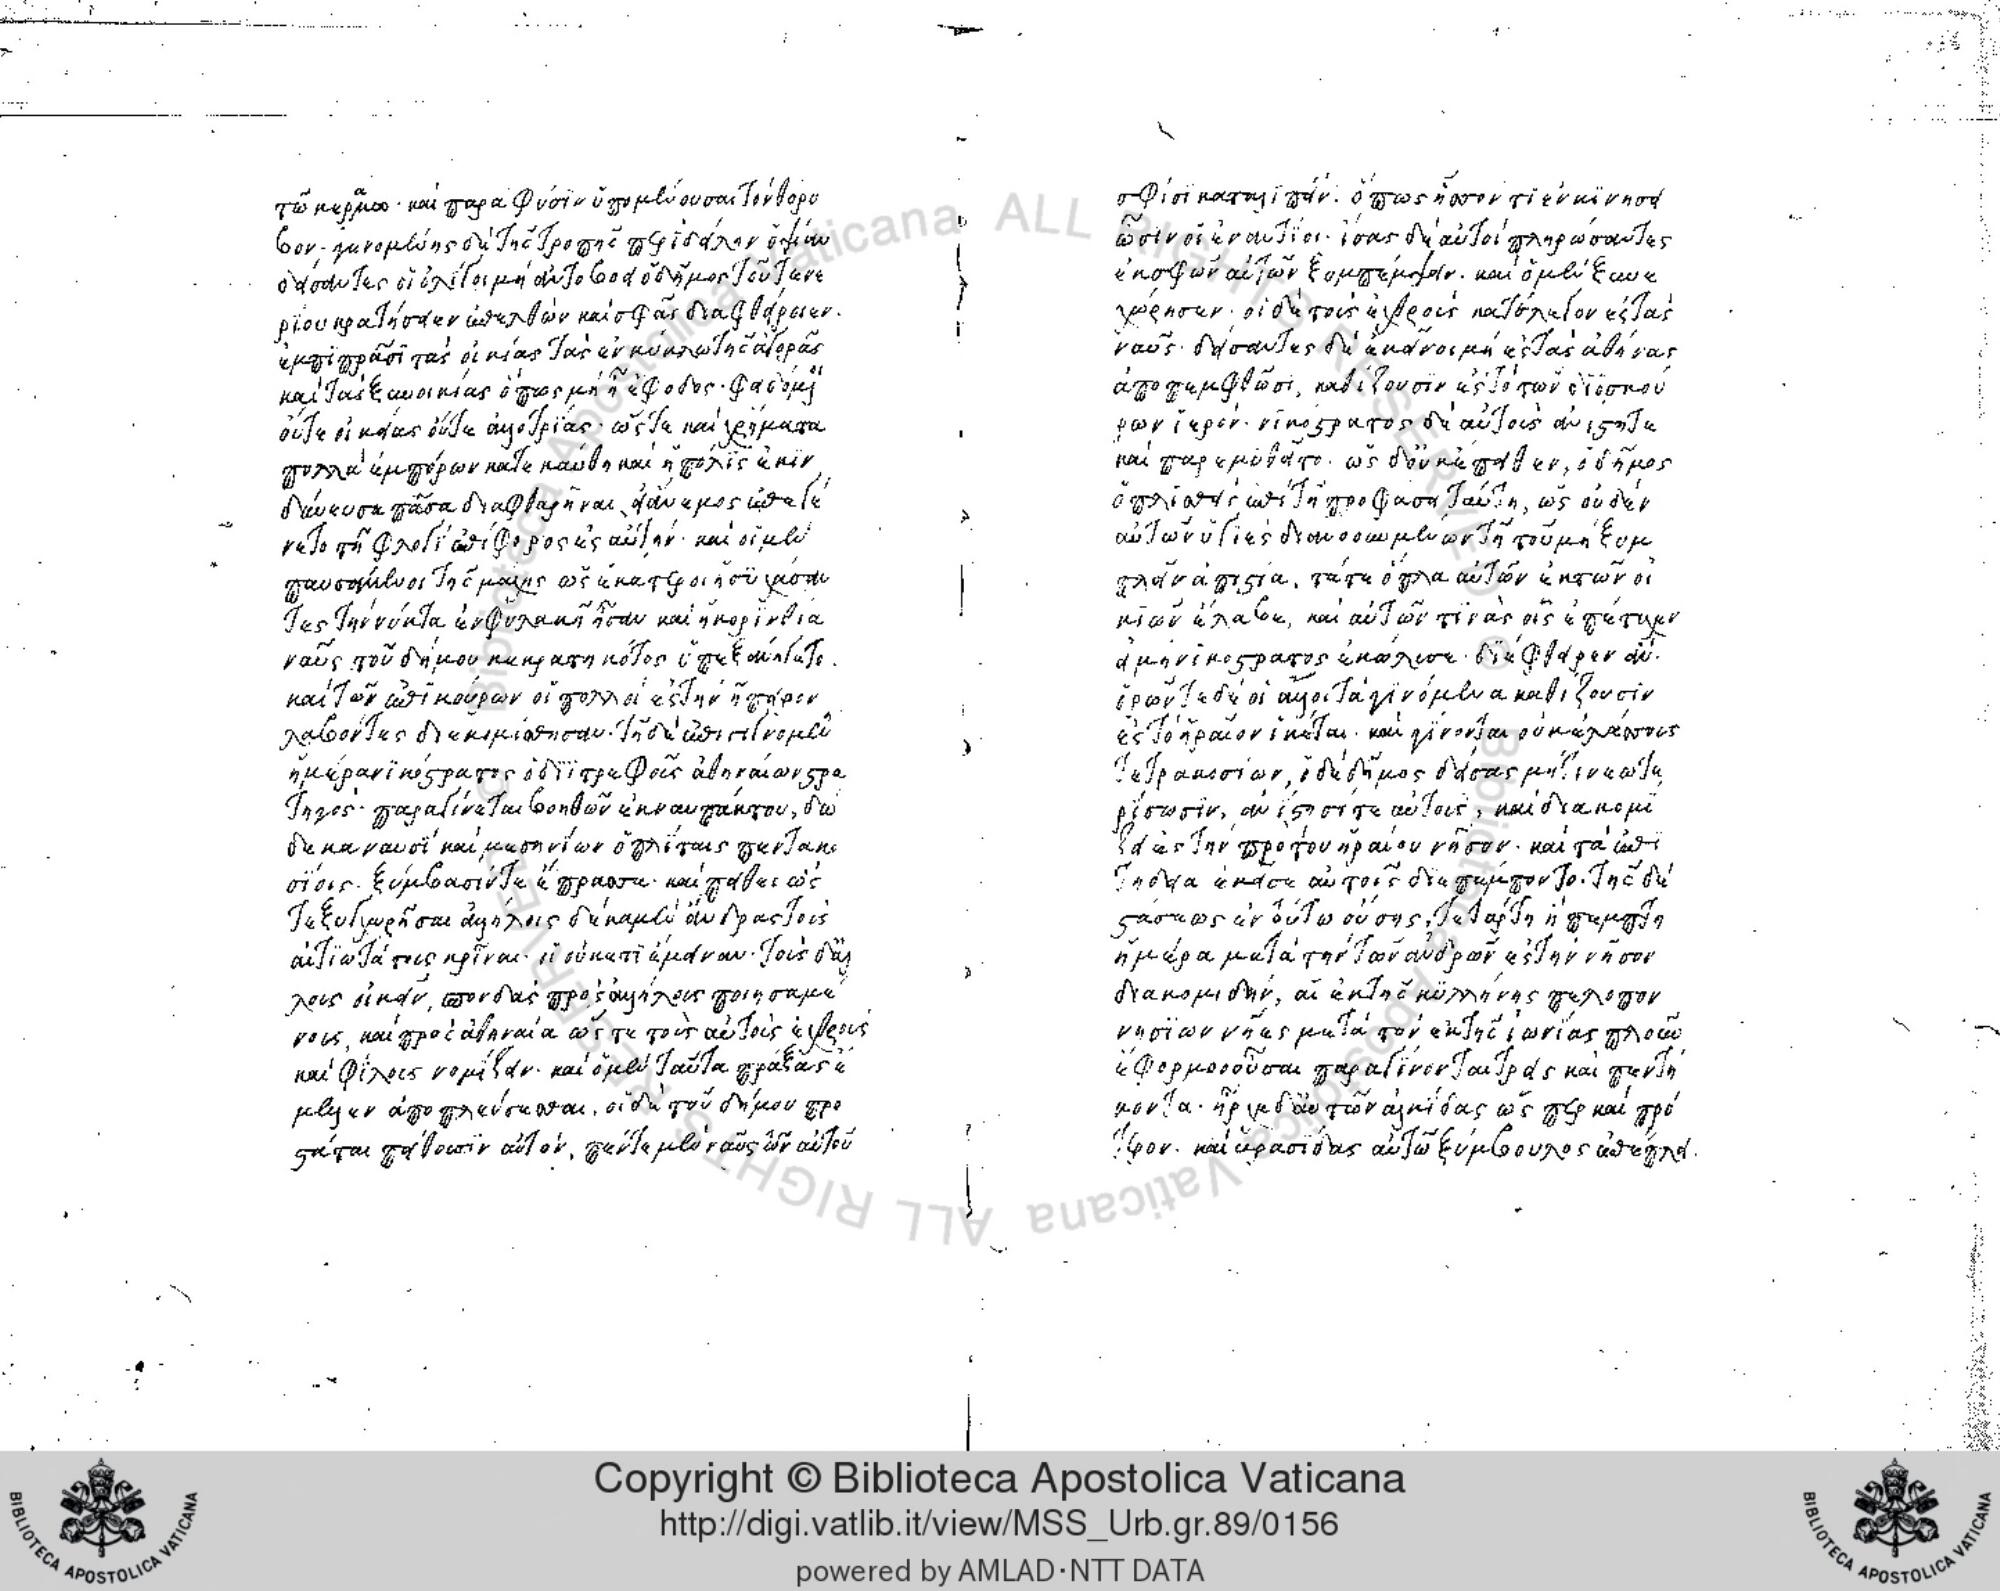 τῷ κεράμῳ· καὶ παρὰ φύσιν ὑπομένουσαι τὸν θόρυ
βον· γενομένης δὲ τῆς τροπῆς περὶ δείλην ὀψίαν
δείσαντες οἱ ὀλίγοι μὴ αὐτοβοεὶ ὁ δῆμος τοῦ τε νε
ρίου κρατήσειεν ἐπελθὼν καὶ σφᾶς διαφθείρειεν·
ἐμπιπρᾶσι τὰς οἰκίας τὰς ἐν κύκλῳ τῆς ἀγορᾶς
καὶ τὰς ξυνοικίας ὅπως μὴ ᾖ ἔφοδος· φειδόμε
οὔτε οἰκείας οὔτε ἀλλοτρίας· ὥστε καὶ χρήματα
πολλὰ ἐμπόρων κατεκαύθη καὶ ἡ πόλις ἐκιν
δύνευσε πᾶσα διαφθαρῆναι, εἰ ἄνεμος ἐπεγέ
νετο τῇ φλογὶ ἐπίφορος ἐς αὐτήν· καὶ οἱ μὲν
παυσάμενοι τῆς μάχης ὡς ἑκάτεροι ἡσυχάσαν
τες τὴν νύκτα ἐν φυλακῇ ἦσαν καὶ ἡ κορινθία
ναῦς τοῦ δήμου κεκρατηκότος ὑπεξανήγετο.
καὶ τῶν ἐπικούρων οἱ πολλοὶ ἐς τὴν ἤπειρον
λαθόντες διεκομίσθησαν· τῇ δὲ ἐπιγιγνομέν
ἡμέρα νικόστρατος ὁ διιτρεφοῦς ἀθηναίων στρα
τηγὸς· παραγίνεται βοηθῶν ἐκ ναυπάκτου, δώ
δεκα ναυσὶ καὶ μεσηνίων ὁπλίταις πεντακο
σίοις· ξύμβασίν τε ἔπρασσε· καὶ πείθει ὥσ
τε ξυγχωρῆσαι ἀλλήλοις δέκα μὲν ἄνδρας τοὺς
αἰτιωτάτους κρῖναι· οἳ οὐκέτι ἔμειναν· τοὺς δ' ἄλ
λους οἰκεῖν, σπονδὰς πρὸς ἀλλήλους ποιησαμέ
νους, καὶ πρὸς ἀθηναίους ὥστε τοὺς αὐτοὺς ἐχθροὺς
καὶ φίλους νομίζειν· καὶ ὁ μὲν ταῦτα πράξας ἔ
μελλεν ἀποπλεύσεσθαι. οἱ δὲ τοῦ δήμου προ
στάται πείθουσιν αὐτὸν, πέντε μὲν ναῦς τῶν αὐτοῦ
σφίσι καταλιπεῖν· ὅπως ἧσσόν τι ἐν κινήσει
ὦσιν οἱ ἐναντίοι· ἴσας δὲ αὐτοὶ πληρώσαντες
ἐκ σφῶν αὐτῶν ξυμπέμψειν· καὶ ὁ μὲν ξυνε
χώρησεν· οἱ δὲ τοὺς ἐχθροὺς κατέλεγον ἐς τὰς
ναῦς· δείσαντες δὲ ἐκεῖνοι μὴ ἐς τὰς ἀθήνας
ἀποπεμφθῶσι, καθίζουσιν ἐς τὸ τῶν διοσκού
ρων ἱερόν· νικόστρατος δὲ αὐτοὺς ἀνίστητε
καὶ παρεμυθεῖτο· ὡς δ' οὐκ ἔπειθεν, ὁ δῆμος
ὁπλισθεὶς ἐπὶ τῇ προφάσει ταύτῃ, ὡς οὐδὲν
αὐτῶν ὑγιὲς διανοουμένων τῇ τοῦ μὴ ξυμ
πλεῖν ἀπιστίᾳ, τά τε ὅπλα αὐτῶν ἐκ τῶν οἰ
κιῶν ἔλαβε, καὶ αὐτῶν τινὰς οἷς ἐπέτυχεν
εἰ μὴ νικόστρατος ἐκώλυσε· διέφθειρεν ἄν·
ὁρῶντες δὲ οἱ ἄλλοι τὰ γινόμενα καθίζουσιν
ἐς τὸ ἥραιον ἱκέται· καὶ γίνονται οὐκ ἐλάσσους
τετρακοσίων, ὁ δὲ δῆμος δείσας μή τι νεωτε
ρίσωσιν, ἀνίστησί τε αὐτοὺς, καὶ διακομί
ζει ἐς τὴν πρὸ τοῦ ἡραίου νῆσον· καὶ τὰ ἐπι
τήδεια ἐκεῖσε αὐτοῖς διεπέμποντο· τῆς δὲ
στάσεως ἐν τούτῳ οὔσης, τετάρτῃ ἢ πέμπτῃ
ἡμέρα μετὰ τὴν τῶν ἀνδρῶν ἐς τὴν νῆσον
διακομιδήν, αἱ ἐκ τῆς κυλλήνης πελοπον
νησίων νῆες μετὰ τὸν ἐκ τῆς ἰωνίας πλοῦν
ἔφορμοι οὖσαι παραγίνονται τρεῖς καὶ πεντή
κοντα· ἦρχε δ' αὐτῶν ἀλκίδας ὥσπερ καὶ πρό
τερον· καὶ βρασίδας αὐτῷ ξύμβουλος ἐπέπλει.
Copyright © Biblioteca Apostolica Vaticana
http://digi.vatlib.it/view/MSS_Urb.gr.89/0156
powered by AMLAD·NTT DATA